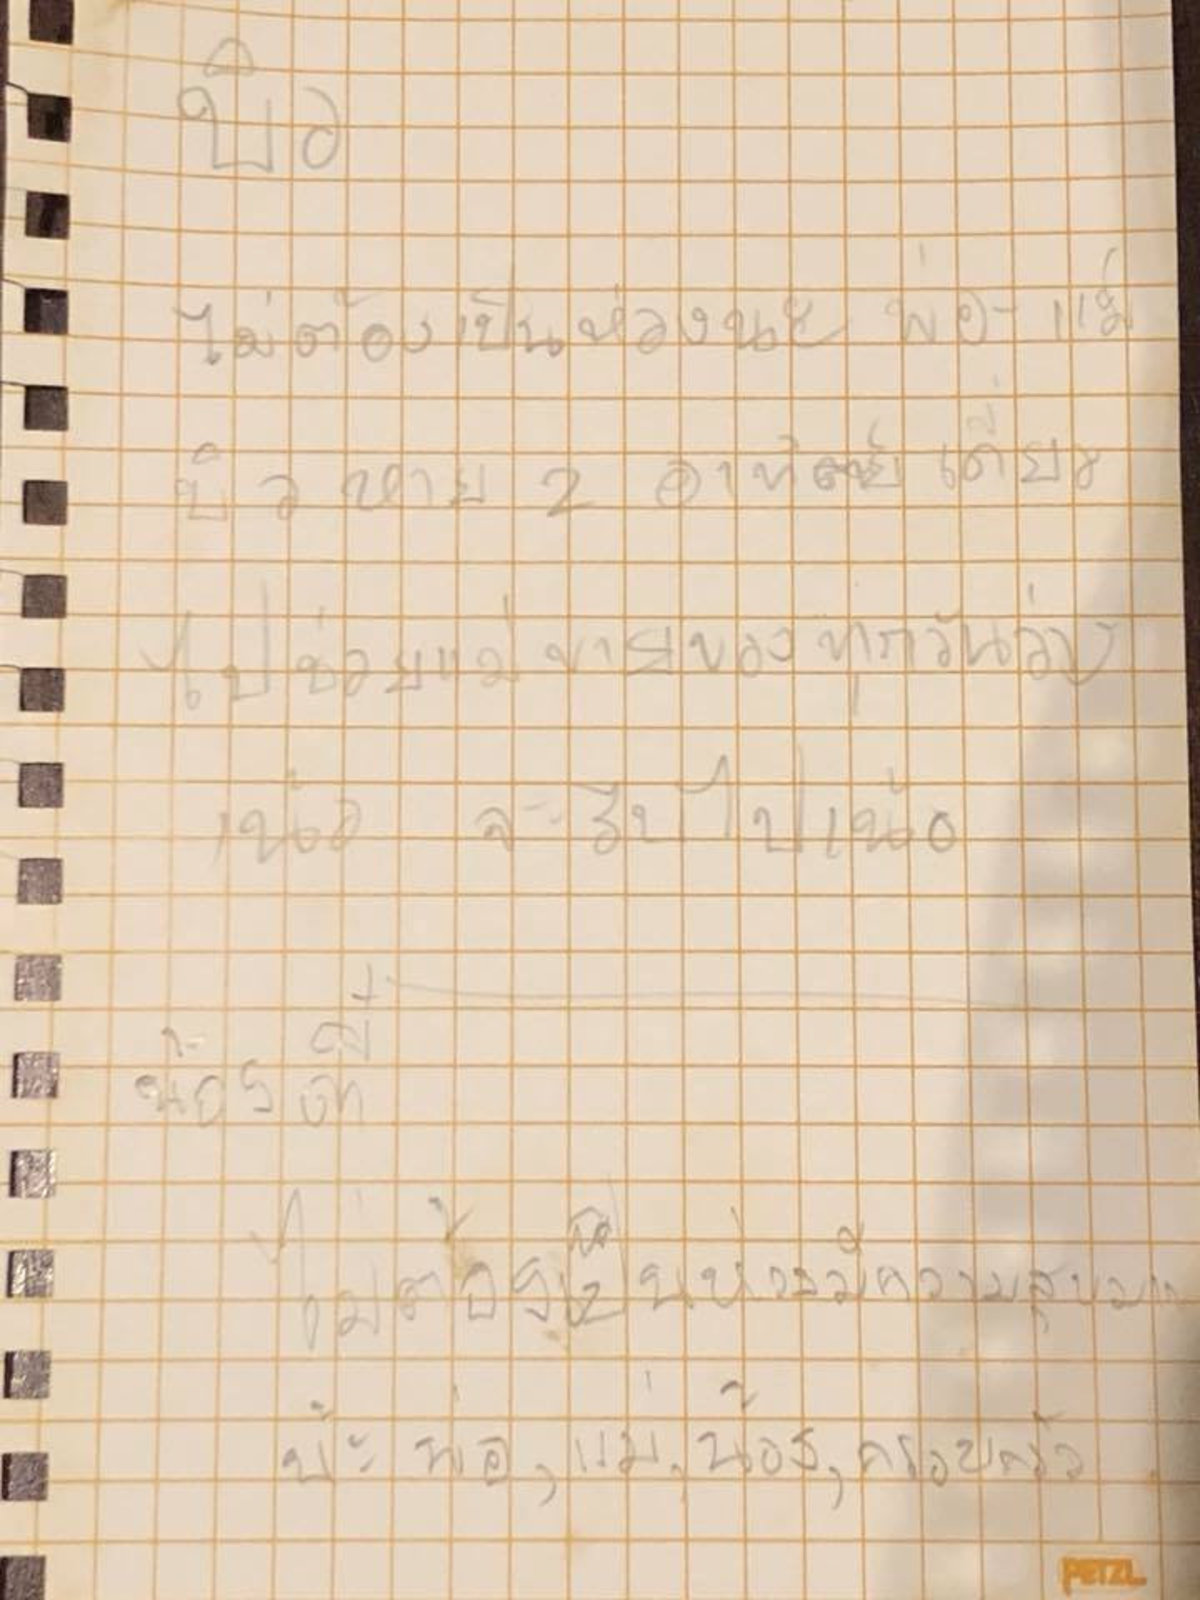 บิว
ไม่ต้องเป็นห่วงนะ พ่อ-แม่
บิวหาย 2 อาทิตย์ เดี๋ยว
ไปช่วยแม่ ขายของ ทุกวัน
เน้อ จะรีบไปเน้อ
น้อง
ไม่ต้องเป็นห่วงมีความสุขมาก
พ่อ, แม่, น้อง, ครอบครัว
PETZL